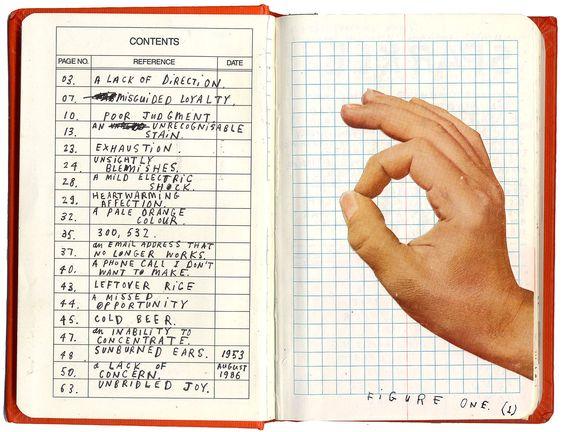 CONTENTS
PAGE NO. REFERENCE DATE
03. A LACK OF DIRECTION.
07. MISGUIDED LOYALTY.
10. POOR JUDGMENT
13. AN UNRECOGNISABLE
STAIN.
23. EXHAUSTION.
24. UNSIGHTLY
BLEMISHES.
28. A MILD ELECTRIC
SHOCK.
29. HEARTWARMING
AFFECTION.
32. A PALE ORANGE
COLOUR.
35. 300,532.
37. an EMAIL ADDRESS THAT
NO LONGER WORKS.
40. A PHONE CALL I DON'T
WANT TO MAKE.
43. LEFTOVER RICE
44. A MISSED
OPPORTUNITY
45. COLD BEER.
47. an INABILITY TO
CONCENTRATE.
48 SUNBURNED EARS. 1953
50. a LACK OF
CONCERN. AUGUST
1986
63. UNBRIDLED JOY.
FIGURE ONE. (1)